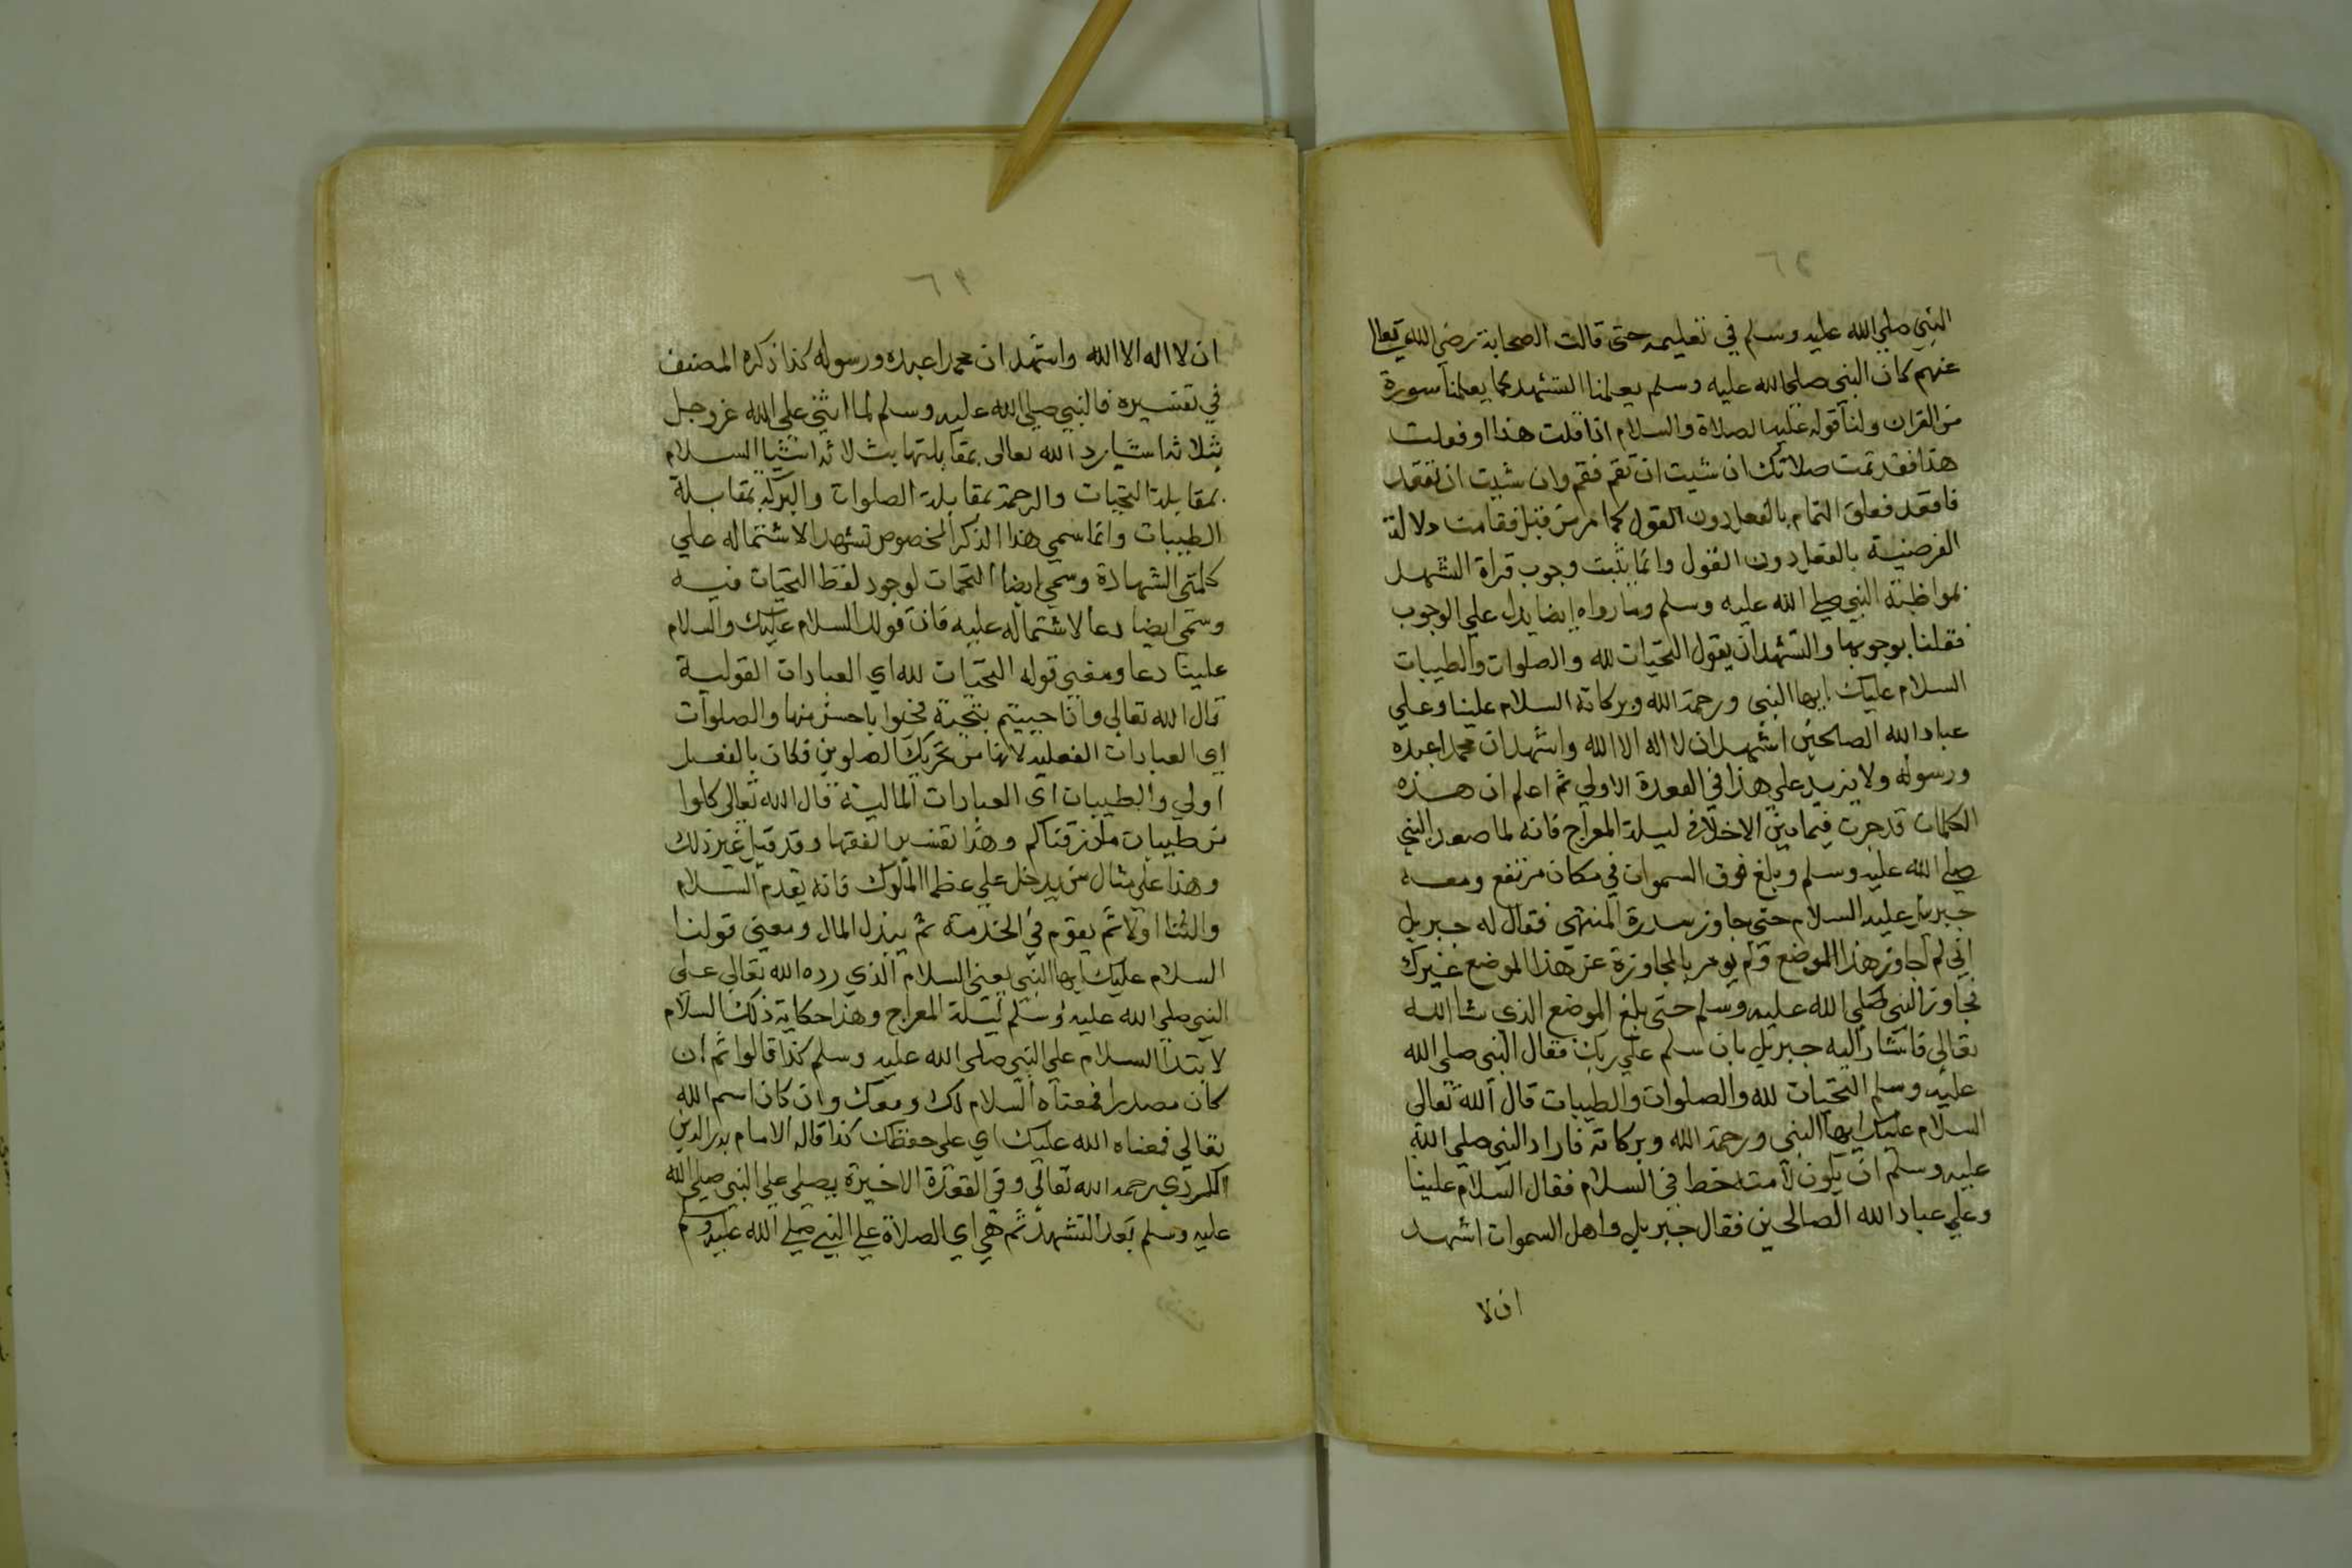 النبي صلي الله عليه وسلم في تعليمه حتى قالت الصحابة رضي الله تعالي
عنهم كان النبي صلي الله عليه وسلم يعلمنا التشهد كما يعلمنا سورة
من القران ولنا قوله عليه الصلاة والسلام اذا قلت هذا او فعلت
هذا فقد تمت صلاتك ان شيت ان تقم فقم وان شيت ان تقعد
فاقعد فعلق التمام بالفعل دون القول كما مر من قبل فقامت دلالة
الفرضية بالفعل دون القول وانما يثبت وجوب قراة التشهد
بمواظبة النبي صلي الله عليه وسلم وما رواه ايضا يدل علي الوجوب
فقلنا بوجوبها والتشهد ان يقول التحيات لله والصلوات والطيبات
السلام عليك ايها النبي ورحمة الله وبركاته السلام علينا وعلي
عباد الله الصالحين اشهد ان لا اله الا الله واشهد ان محمدا عبده
ورسوله ولا يزيد علي هذا في القعدة الاولي ثم اعلم ان هذه
الكلمات قد جرت فيما بين الاخلاف ليلة المعراج فانه لما صعد النبي
صلي الله عليه وسلم وبلغ فوق السموات في مكان مرتفع ومعه
جبريل عليه السلام حتى جاوز سدرة المنتهى فقال له جبريل
اني لم اجاوز هذا الموضع ولم يومر بالمجاوزة عن هذا الموضع غيرك
فجاوز النبي صلي الله عليه وسلم حتى بلغ الموضع الذي شا الله
تعالي فاشار اليه جبريل بان سلم علي ربك فقال النبي صلي الله
عليه وسلم التحيات لله والصلوات والطيبات قال الله تعالى
السلام عليك ايها النبي ورحمة الله وبركاته فاراد النبي صلي الله
عليه وسلم ان يكون لامته خط في السلام فقال السلام علينا
وعلي عباد الله الصالحين فقال جبريل واهل السموات اشهد
ان لا
ان لا اله الا الله واشهد ان محمدا عبده ورسوله كذا ذكره المصنف
في تفسيره فالنبي صلي الله عليه وسلم لما اثني علي الله عز وجل
بثلاثة اشيا رد الله تعالى بمقابلتها بثلاثة اشيا السلام
بمقابلة التحيات والرحمة بمقابلة الصلوات والبركة بمقابلة
الطيبات وانما سمي هذا الذكر المخصوص تشهدا لاشتماله علي
كلمتي الشهادة وسمي ايضا التحيات لوجود لفظ التحيات فيه
وسمي ايضا دعا لاشتماله عليه فان قولك السلام عليك والسلام
علينا دعا ومعني قوله التحيات لله اي العبادات القولية
قال الله تعالي واذا حييتم بتحية فحيوا باحسن منها والصلوات
اي العبادات الفعلية لانها من تحريك الصلوين فكان بالفعل
اولي والطيبات اي العبادات المالية قال الله تعالي كلوا
من طيبات ما رزقناكم وهذا تفسير الفقها وقد قيل غير ذلك
وهذا علي مثال من يدخل علي عظما الملوك فانه يقدم السلام
والثنا اولا ثم يقوم في الخدمة ثم يبذل المال ومعني قولنا
السلام عليك ايها النبي يعني السلام الذي رده الله تعالي علي
النبي صلي الله عليه وسلم ليلة المعراج وهذا حكاية ذلك السلام
لا ابتدا السلام علي النبي صلي الله عليه وسلم كذا قالوا ثم ان
كان مصدرا فمعناه السلام لك ومعك وان كان اسم الله
تعالي فمعناه الله عليك اي علي حفظك كذا قاله الامام بدر الدين
الكردي رحمه الله تعالي وفي القعدة الاخيرة يصلي علي النبي صلي الله
عليه وسلم بعد التشهد ثم هي اي الصلاة علي النبي صلي الله عليه وسلم